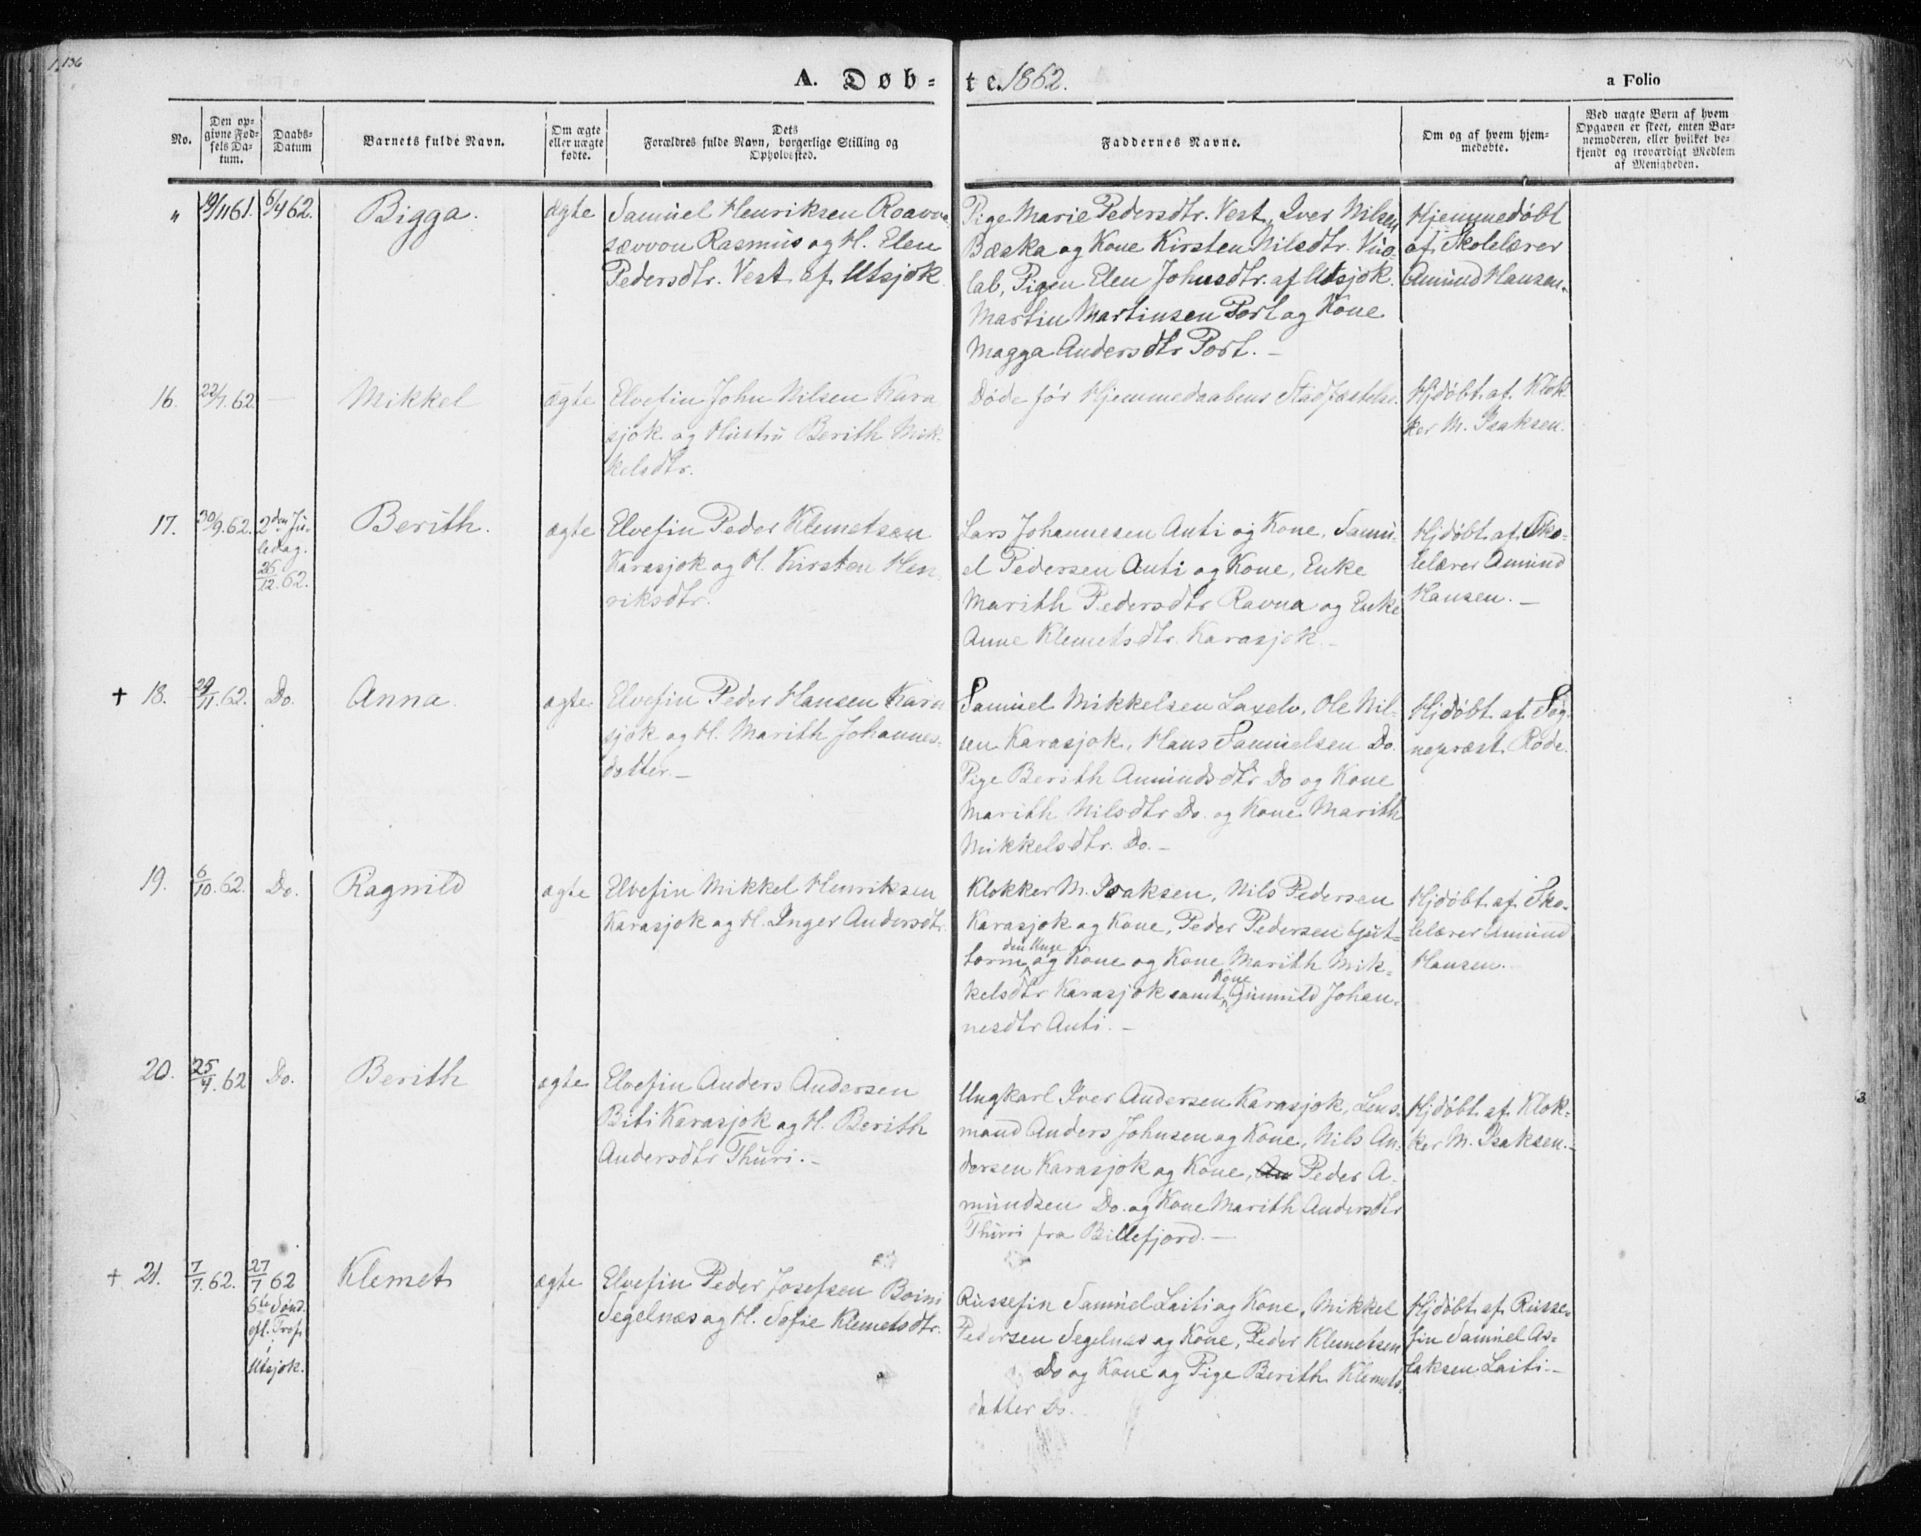 136
A. Døb-
te. 1862.
a Folio
No.
Den op-
givne Fød-
sels Da-
tum.
Daabs-
Datum
Barnets fulde Navn.
Om ægte
eller uægte
fødte.
Dets
Forældres fulde Navn, borgerlige Stilling og
Opholdssted.
Faddernes Navne.
Om og af hvem hjem-
medøbte.
Ved uægte Børn af hvem
Opgaven er skeet, enten Bar-
nemoderen, eller hvilket be-
kjendt og troværdigt Medlem
af Menigheden.
"
19/11 61.
6/4 62.
Bigga.
ægte
Samuel Henriksen
Rasmus og H. Elen
Pedersdtr. Vest af Utsjok
Pige Marie Pedersdtr. Vest, Iver Nilsen
Bæska og Kone Kirsten Nilsdtr. Vuo-
lab, Pigen Elen Johnsdtr. af Utsjok.
Martin Martinsen Port og Kone
Magga Andersdtr Port. -
Hjemmedøbt
af Skolelærer
Amund Hansen.
16.
22/1. 62.
-
Mikkel
ægte
Elvefin John Nilsen Kara
sjok og Hustru Berith Mik-
kelsdtr.
Døde før Hjemmedaabens Stadfæstelse.
Hjdøbt af Klok
ker M. Isaksen.
17.
30/9. 62.
2den Ju-
ledag.
26
12. 62.
Berith.
ægte
Elvefin Peder Klemetsen
Karasjok og H. Kirsten Hen-
riksdtr.
Lars Johannesen Anti og Kone, Samu-
el Pedersen Anti og Kone, Enke
Marith Pedersdtr Ravna og Enke
Anne Klemetsdtr. Karasjok. -
Hjdøbt af Sko-
lelærer Amund
Hansen. -
+ 18.
29/11. 62.
Do.
Anna
ægte
Elvefin Peder Hansen Kara
sjok og H. Marith Johannes-
datter. -
Samuel Mikkelsen Laxelv, Ole Nil-
sen Karasjok, Hans Samuelsen Do.
Pige Berith Amundsdtr Do og Kone
Marith Nilsdtr Do. og Kone Marith
Mikkelsdtr. Do. -
Hjdøbt af Sog-
nepræst Rode.
19.
6/10. 62.
Do.
Ragnild
ægte
Elvefin Mikkel Henriksen
Karasjok og H. Inger Andersdtr.
Klokker M. Isaksen, Nils Pedersen
Karasjok og Kone, Peder Pedersen Gjut-
den Unge
torm og Kone og Kone Marith Mik-
Kone
kelsdtr Karasjok samt Gunnild Johan-
nesdtr Anti. -
Hjdøbt af Sko-
lelærer Amund
Hansen.
20.
25/4. 62
Do.
Berith
ægte
Elvefin Anders Andersen
Biti Karasjok og H. Berith
Andersdtr Thuri. -
Ungkarl Iver Andersen Karasjok, Lens-
mand Anders Johnsen og Kone, Nils An-
dersen Karasjok og Kone, An Peder A-
mundsen Do. og Kone Marith Andersdtr
Thurri fra Billefjord. -
Hjdøbt af Klok-
ker M. Isaksen. -
+ 21.
7/7. 62.
27/7 62
6te Sønd.
eft. Tref.
i
Utsjok.
Klemet
ægte
Elvefin Peder Josefsen Boini
Segelnæs og H. Sofie Klemetsdtr.
Russefin Samuel Laiti og Kone, Mikkel
Pedersen Segelnæs og Kone, Peder Klemetsen
Do og Kone og Pige Berith Klemets-
datter Do.
Hjdøbt af Russe-
fin Samuel As-
laksen Laiti. -